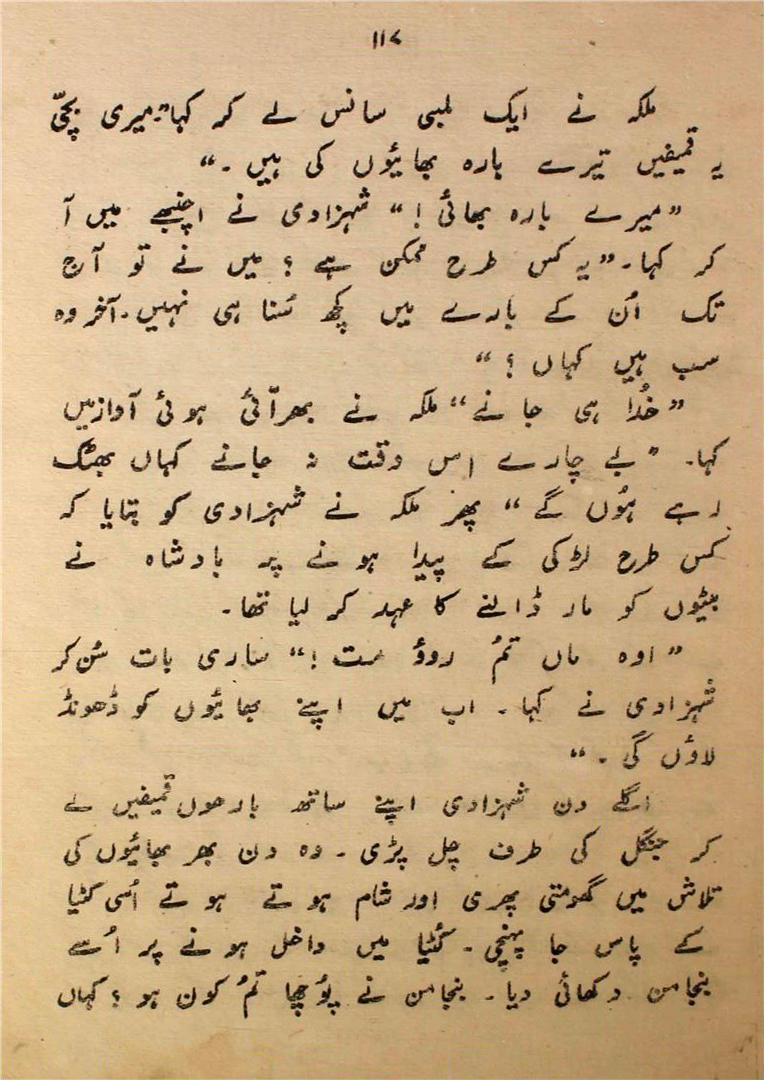 ۱۱۷
ملکہ نے ایک لمبی سانس لے کر کہا "میری بچّی
یہ قمیضیں تیرے بارہ بھائیوں کی ہیں۔"
"میرے بارہ بھائی!" شہزادی نے اچنبھے میں آ
کر کہا۔ "یہ کس طرح ممکن ہے؟ میں نے تو آج
تک اُن کے بارے میں کچھ سُنا ہی نہیں۔ آخر وہ
سب ہیں کہاں؟"
"خُدا ہی جانے" ملکہ نے بھرّائی ہوئی آواز میں
کہا۔ "بے چارے اس وقت نہ جانے کہاں بھٹک
رہے ہُوں گے" پھر ملکہ نے شہزادی کو بتایا کہ
کس طرح لڑکی کے پیدا ہونے پر بادشاہ نے
بیٹوں کو مار ڈالنے کا عہد کر لیا تھا۔
"اوہ ماں تُم روؤ مت!" ساری بات سُن کر
شہزادی نے کہا۔ اب میں اپنے بھائیوں کو ڈھونڈ
لاؤں گی۔"
اگلے دن شہزادی اپنے ساتھ بارھوں قمیضیں لے
کر جنگل کی طرف چل پڑی۔ وہ دن بھر بھائیوں کی
تلاش میں گھومتی پھری اور شام ہوتے ہوتے اُسی کٹیا
کے پاس جا پہنچی۔ کُٹیا میں داخل ہونے پر اُسے
بنجامن دکھائی دیا۔ بنجامن نے پُوچھا تُم کون ہو؟ کہاں